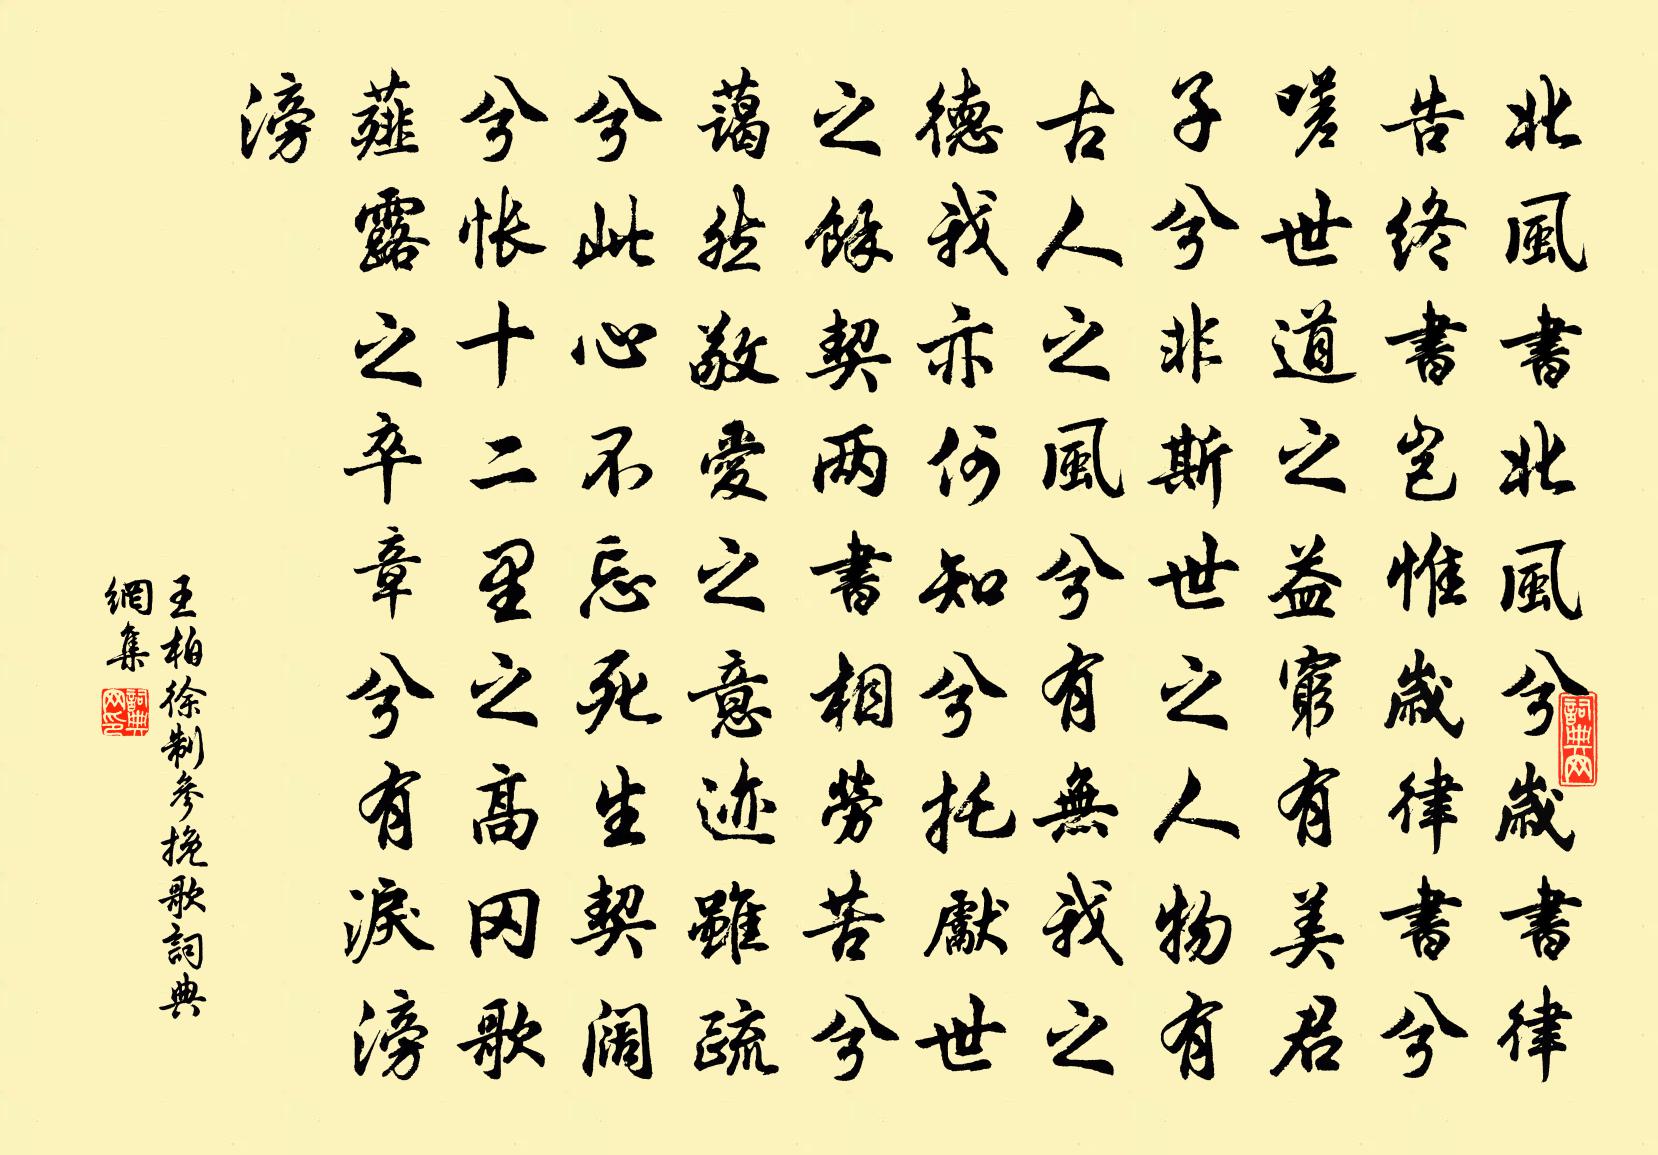 北風書北風兮歲書律
告終書豈惟歲律書兮
嗟世道之益窮有美君
子兮非斯世之人物有
古人之風兮有無我之
德我亦何知兮托獻世
之餘契两書相勞苦兮
藹然敬愛之意迹雖疏
兮此心不忘死生契闊
兮怅十二里之高冈歌
薤露之卒章兮有淚滂
滂
王柏徐制參挽歌詞典
網集
詞典网
詞典网印